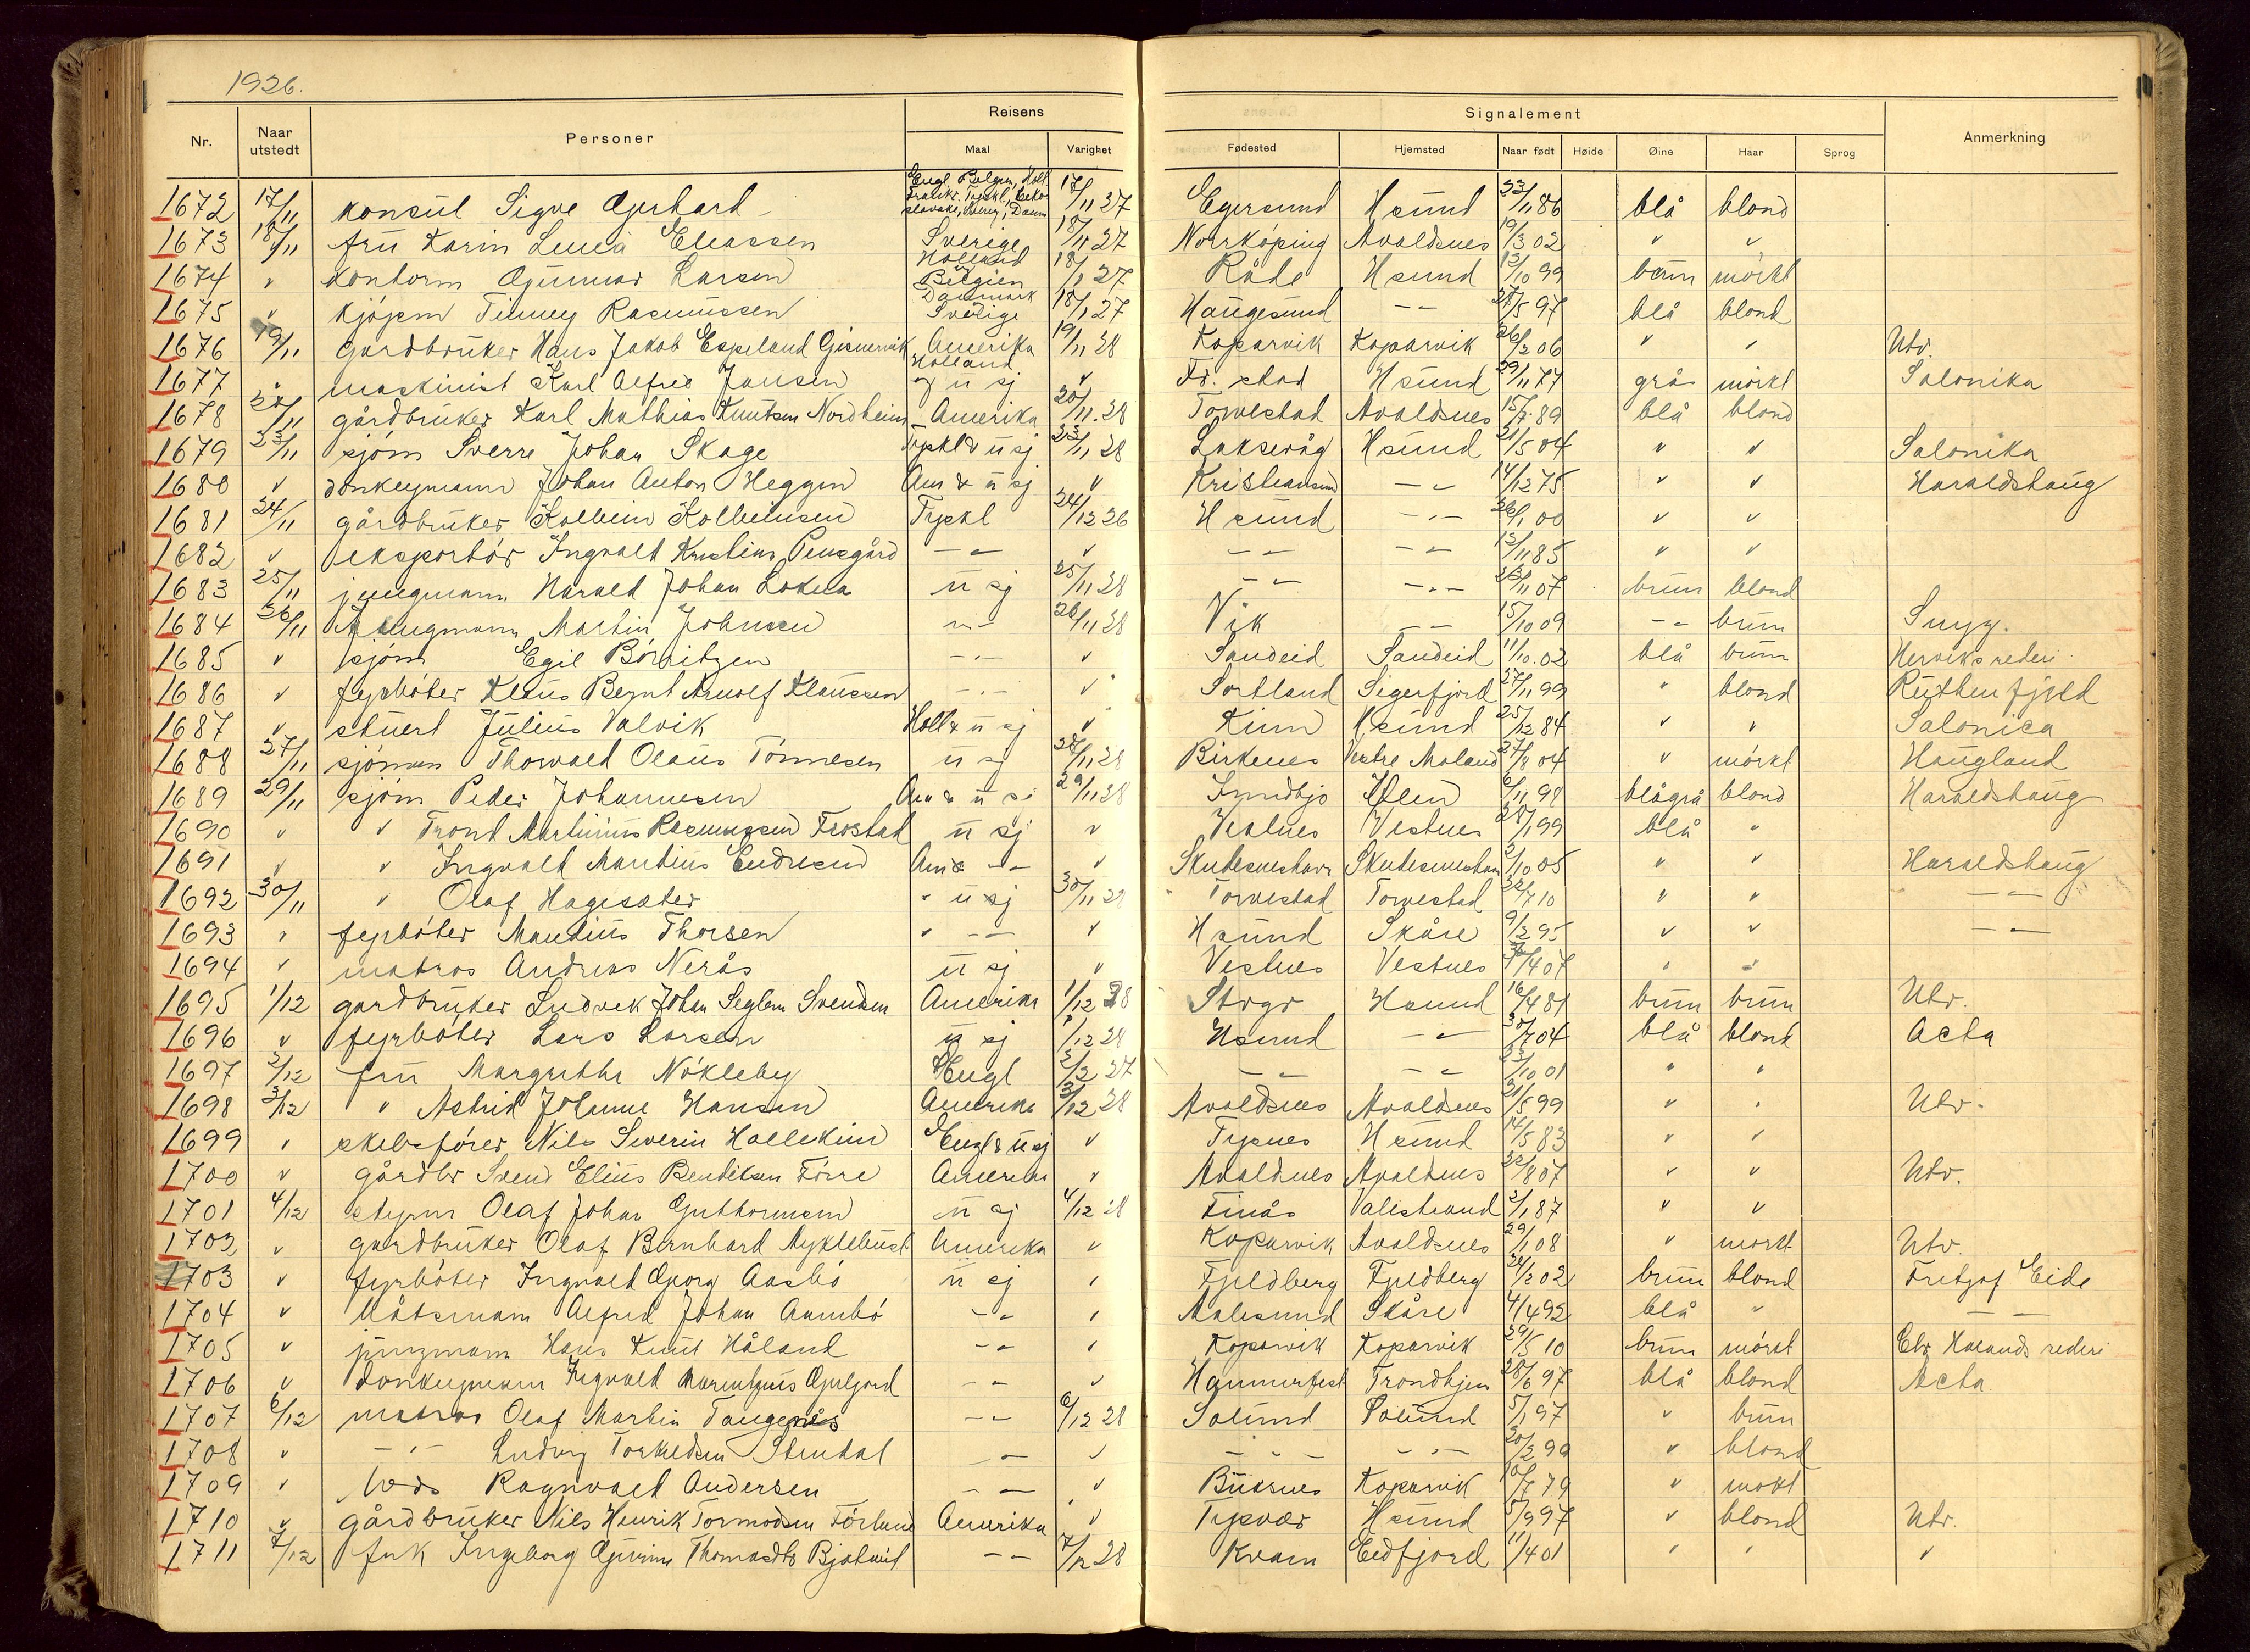 1926.
Reisens
Signalement
Nr. Naar utstedt Personer Maal Varighet Fødested Hjemsted Naar født Høide Øine Haar Sprog Anmerkning
1672 17/11 konsul Sigve Gerhard Engl Belgien, Holl Frankr. Tyskl, Tsjeko slovake, Sverg, Danm 17/11 27 Egersund Hsund 23/11 86 blå blond
1673 18/11 fru Karin Lucia Eliassen Sverige 18/11 27 Norrköping Avaldsnes 19/3 02 " "
1674 " kontorm Gunnar Larsen Holland Belgien 18/11 27 Råde Hsund 12/10 99 brun mörkt
1675 " kjöpm Timmy Rasmussen Danmark Sverige 18/11 27 Haugesund -"- 27/5 97 blå blond
1676 19/11 Gardbruker Hans Jakob Espeland Gismervik Amerika 19/11 28 Koparvik Koparvik 26/2 06 " " Utv.
1677 " maskinist Karl Alfred Jansen Holland og u sj " Fr. stad Hsund 29/11 77 grå mörkt Salonika
1678 20/11 gårdbruker Karl Mathias Knutsen Nordheim Amerika 20/11.28 Torvestad Avaldsnes 15/7.89 blå blond
1679 23/11 sjöm Sverre Johan Skage Tyskl & u sj 23/11 28 Laksevåg Hsund 21/5 04 " " Salonika
1680 " donkeymann Johan Anton Heggen Am & u sj " Kristiansund -"- 14/12 75 " " Haraldshaug
1681 24/11 gårdbruker Kolbein Kolbeinsen Tyskl 24/12 26 Hsund -"- 26/1 00 " "
1682 " eksportör Ingvald Kristian Pensgård -"- " -"- -"- 13/11 85 " "
1683 25/11 jungmann Harald Johan Lokna u sj 25/11 28 -"- -"- 23/11 07 brun blond
1684 26/11 Jungmann Martin Johnsen -"- 26/11 28 Vik -"- 15/10 09 -"- brun Snyg.
1685 " sjöm Egil Börritzen -"- " Sandeid Sandeid 11/10.02 blå brun Herviks rederi
1686 " fyrböter Klaus Bernt Arnolf Klaussen -"- " Sortland Sigerfjord 27/11 99 " blond Ruthenfjeld
1687 " stuert Julius Valvik Holl & u sj " Kinn Hsund 25/12 84 " " Salonica
1688 27/11 sjömann Thorvald Olaus Tönnesen u sj 27/11 28 Birkenes Vestre Moland 27/8 04 " mörkt Haugland
1689 29/11 sjöm Peder Johannesen Am & u sj 29/11 28 Imidbjo Ølen 6/11 98 blågrå blond Haraldshaug
1690 " " Trond Martinius Rasmussen Frostad u sj " Vestnes Vestnes 28/1 99 blå "
1691 " " Ingvald Mandius Endresen Am & -"- " Skudesneshavn Skudesneshavn 2/10 05 " " Haraldshaug
1692 30/11 " Olaf Hagesæter " u sj 30/11 28 Torvestad Torvestad 22/7 10 " " -"-
1693 " fyrböter Mandius Thorsen " -"- " Hsund Skåre 9/2 95 " " -"-
1694 " matros Andreas Nerås u sj " Vestnes Vestnes /4 07 " "
1695 1/12 gardbruker Ludvik Johan Seglem Svendsen Amerika 1/12 28 Stord Hsund 16/4 81 brun brun Utv.
1696 " fyrböter Lars Larsen u sj 1/12 28 Hsund -"- 30/7 04 blå blond Acta
1697 2/12 fru Margrethe Nökleby Engl 2/2 27 -"- -"- 23/10 01 " "
1698 3/12 " Astrid Johanne Hansen Amerika 3/12 28 Avaldsnes Avaldsnes 31/5 99 " " Utv.
1699 " skibsförer Nils Severin Hallekim Engl & u sj " Tysnes Hsund 14/5 83 " "
1700 " gårdbr Svend Elius Bendiksen Förre Amerika " Avaldsnes Avaldsnes 22/8 07 " " Utv.
1701 4/12 styrm Olaf Johan Guttormsen u sj 4/12 28 Finås Valestrand 2/1 87 " "
1702 " gardbruker Olaf Bernhard Myklebust Amerika " Koparvik Avaldsnes 29/1 08 " mörkt Utv.
1703 " fyrböter Ingvald Georg Aasbö u sj " Fjeldberg Fjeldberg 24/2 02 brun blond Fritjof Eide
1704 " båtsmann Alfred Johan Aambö -"- " Aalesund Skåre 4/4 92 blå " -"-
1705 " jungmann Hans Knut Håland -"- " Koparvik Koparvik 29/5 10 brun mörkt Chr Haalands rederi
1706 " donkeymann Ingvald Marentzius Gjelgord -"- " Hammerfest Trondhjem 28/6 97 blå blond Acta
1707 6/12 matros Olaf Martin Taugenes -"- 6/12 28 Solund Solund 5/1 97 " brun
1708 " -"- Ludvig Torkildsen Stendal -"- " -"- -"- 20/2 99 " blond
1709 " lods Ragnvald Andersen -"- " Buksnes Koparvik 10/7 79 " mökt
1710 " gårdbruker Nils Henrik Tormodsen Förland Amerika " Tysvær Hsund 5/9 97 " blond Utv.
1711 7/12 frk Ingeborg Gurine Thomasdtr Bjotveit -"- 7/12 28 Kvam Eidfjord 11/4 01 " " "